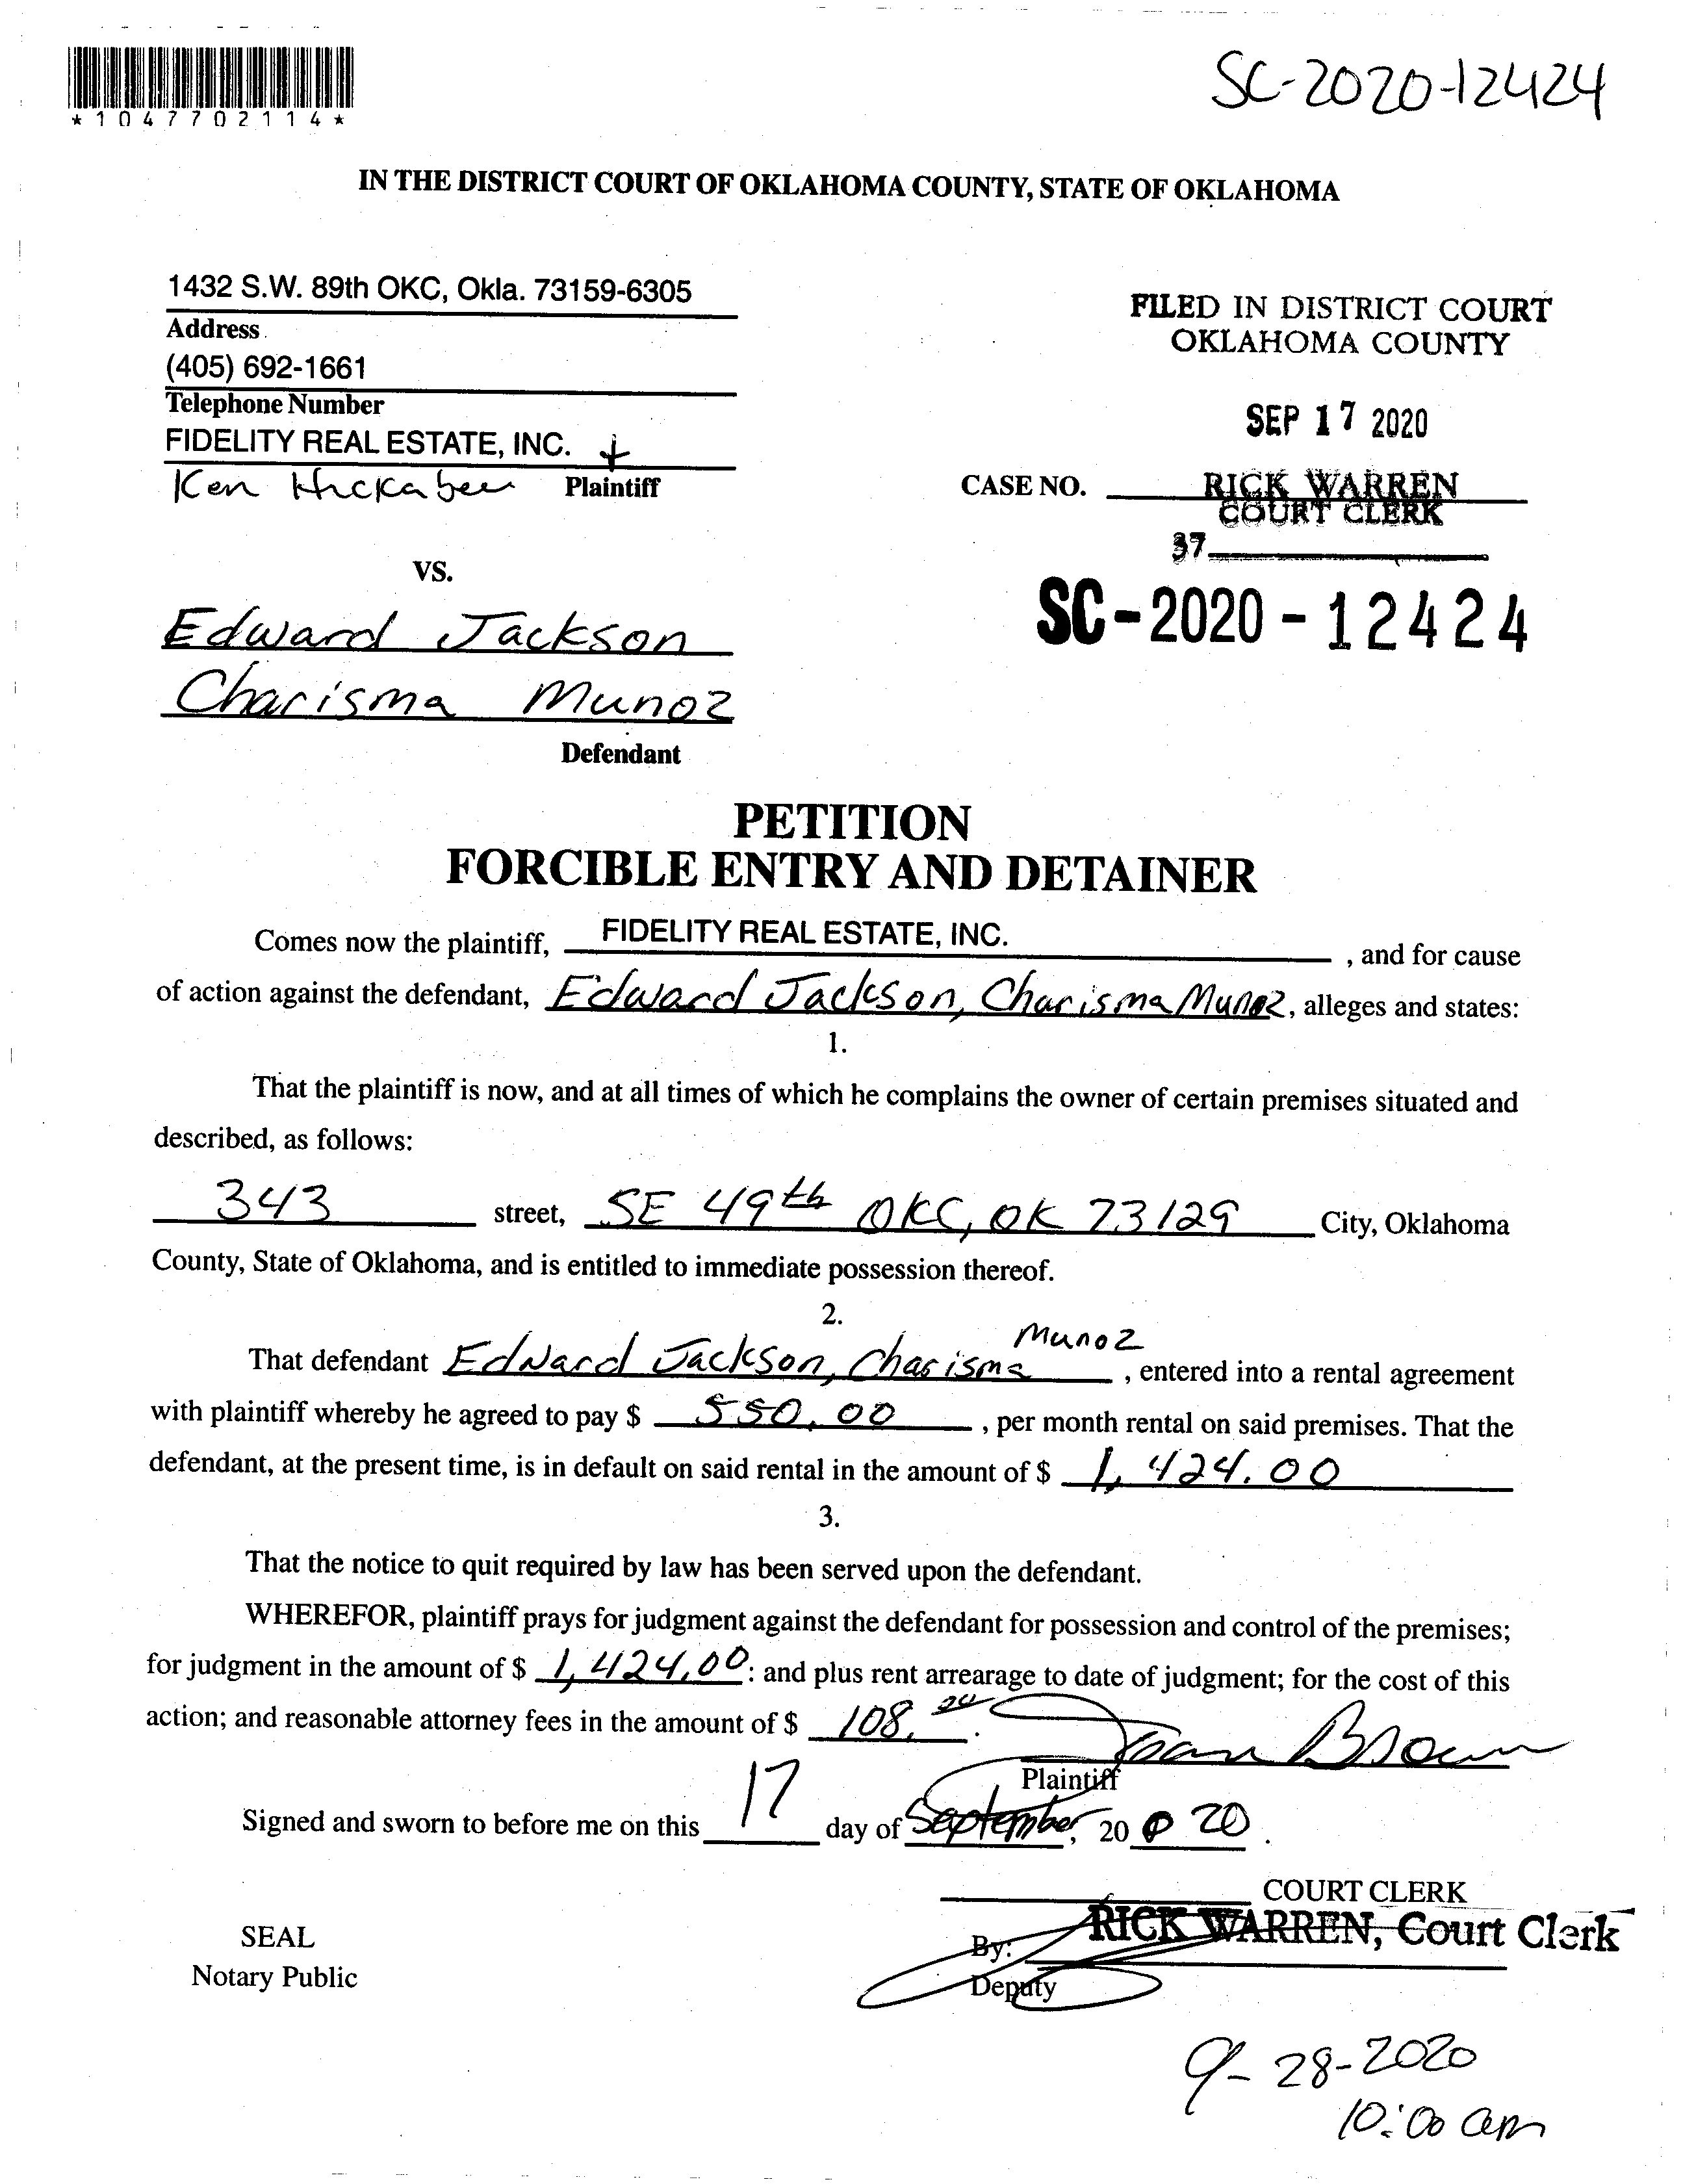 SC-2020-12424
*1047702114*
IN THE DISTRICT COURT OF OKLAHOMA COUNTY, STATE OF OKLAHOMA
1432 S.W. 89th OKC, Okla. 73159-6305
Address
(405) 692-1661
Telephone Number
FIDELITY REAL ESTATE, INC. +
Ken Huckabee Plaintiff
FILED IN DISTRICT COURT
OKLAHOMA COUNTY
SEP 17 2020
CASE NO. RICK WARREN
COURT CLERK
37
SC-2020-12424
VS.
Edward Jackson
Charisma Munoz
Defendant
PETITION
FORCIBLE ENTRY AND DETAINER
Comes now the plaintiff, FIDELITY REAL ESTATE, INC. , and for cause
of action against the defendant, Edward Jackson, Charisma Munoz, alleges and states:
1.
That the plaintiff is now, and at all times of which he complains the owner of certain premises situated and
described, as follows:
343 street, SE 49th OKC, OK 73129 City, Oklahoma
County, State of Oklahoma, and is entitled to immediate possession thereof.
2.
That defendant Edward Jackson, Charisma Munoz , entered into a rental agreement
with plaintiff whereby he agreed to pay $ 550.00 , per month rental on said premises. That the
defendant, at the present time, is in default on said rental in the amount of $ 1,424.00
3.
That the notice to quit required by law has been served upon the defendant.
WHEREFOR, plaintiff prays for judgment against the defendant for possession and control of the premises;
for judgment in the amount of $ 1,424.00: and plus rent arrearage to date of judgment; for the cost of this
action; and reasonable attorney fees in the amount of $ 108. .
Joan Brown
Plaintiff
Signed and sworn to before me on this 17 day of September, 20 20 .
COURT CLERK
RICK WARREN, Court Clerk
SEAL
By:
Notary Public
Deputy
9-28-2020
10:00 am